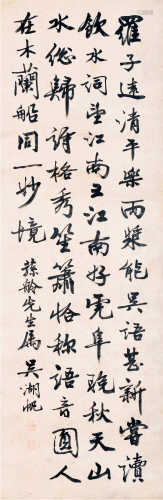 羅子遠清平樂兩槳能吳語甚新嘗讀
飲水詞望江南又江南好虎阜晚秋天山
水總歸詩格秀笙簫恰稱語音圓人
在木蘭船同一妙境 蓀齡先生屬 吳湖帆